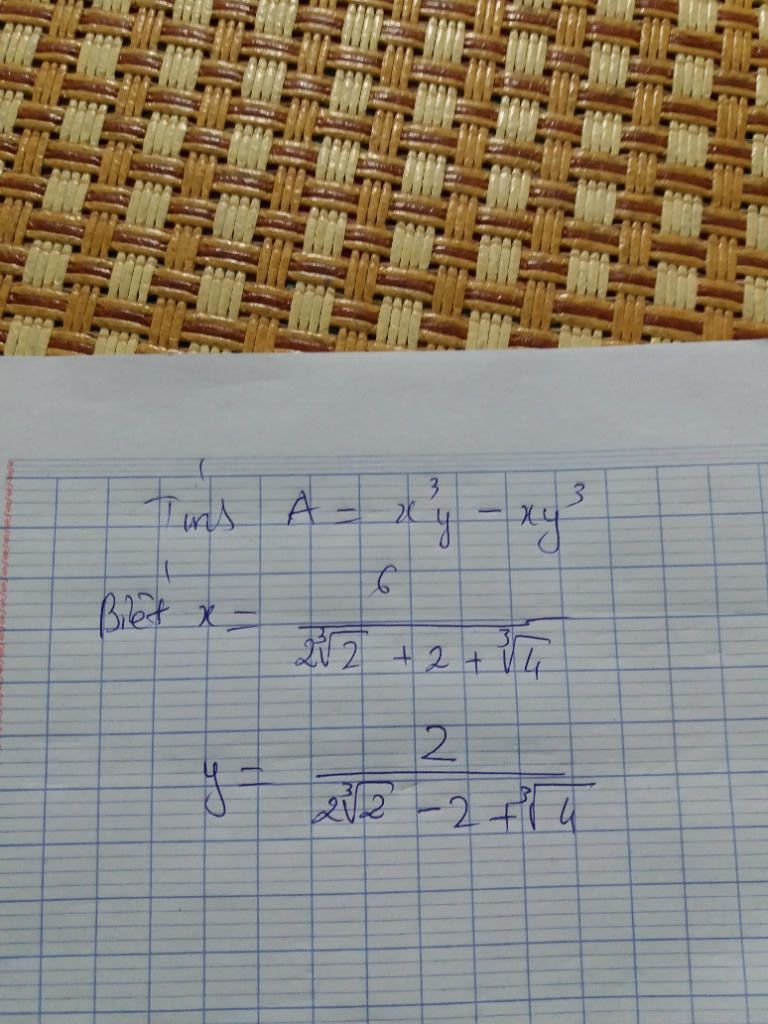 Tính A = x³y - xy³
Biết x = 6 / (2∛2 + 2 + ∛4)
y = 2 / (2∛2 - 2 + ∛4)